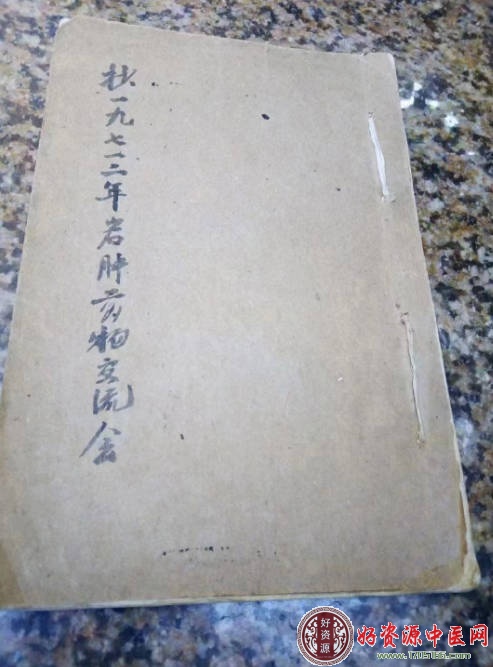 抄一九七二年岩肿药物交流会
好资源
好资源中医网